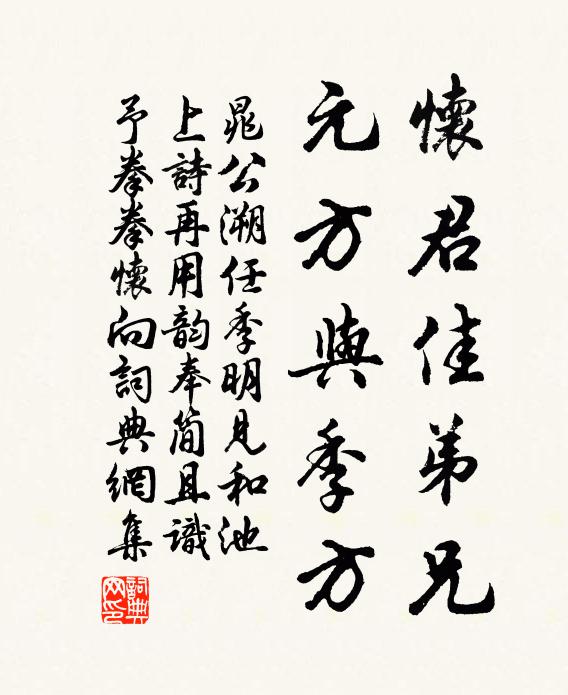 懷君佳弟兄
元方與季方
晁公溯任季明見和池
上詩再用韵奉簡且識
予拳拳懷向詞典網集
詞典網印